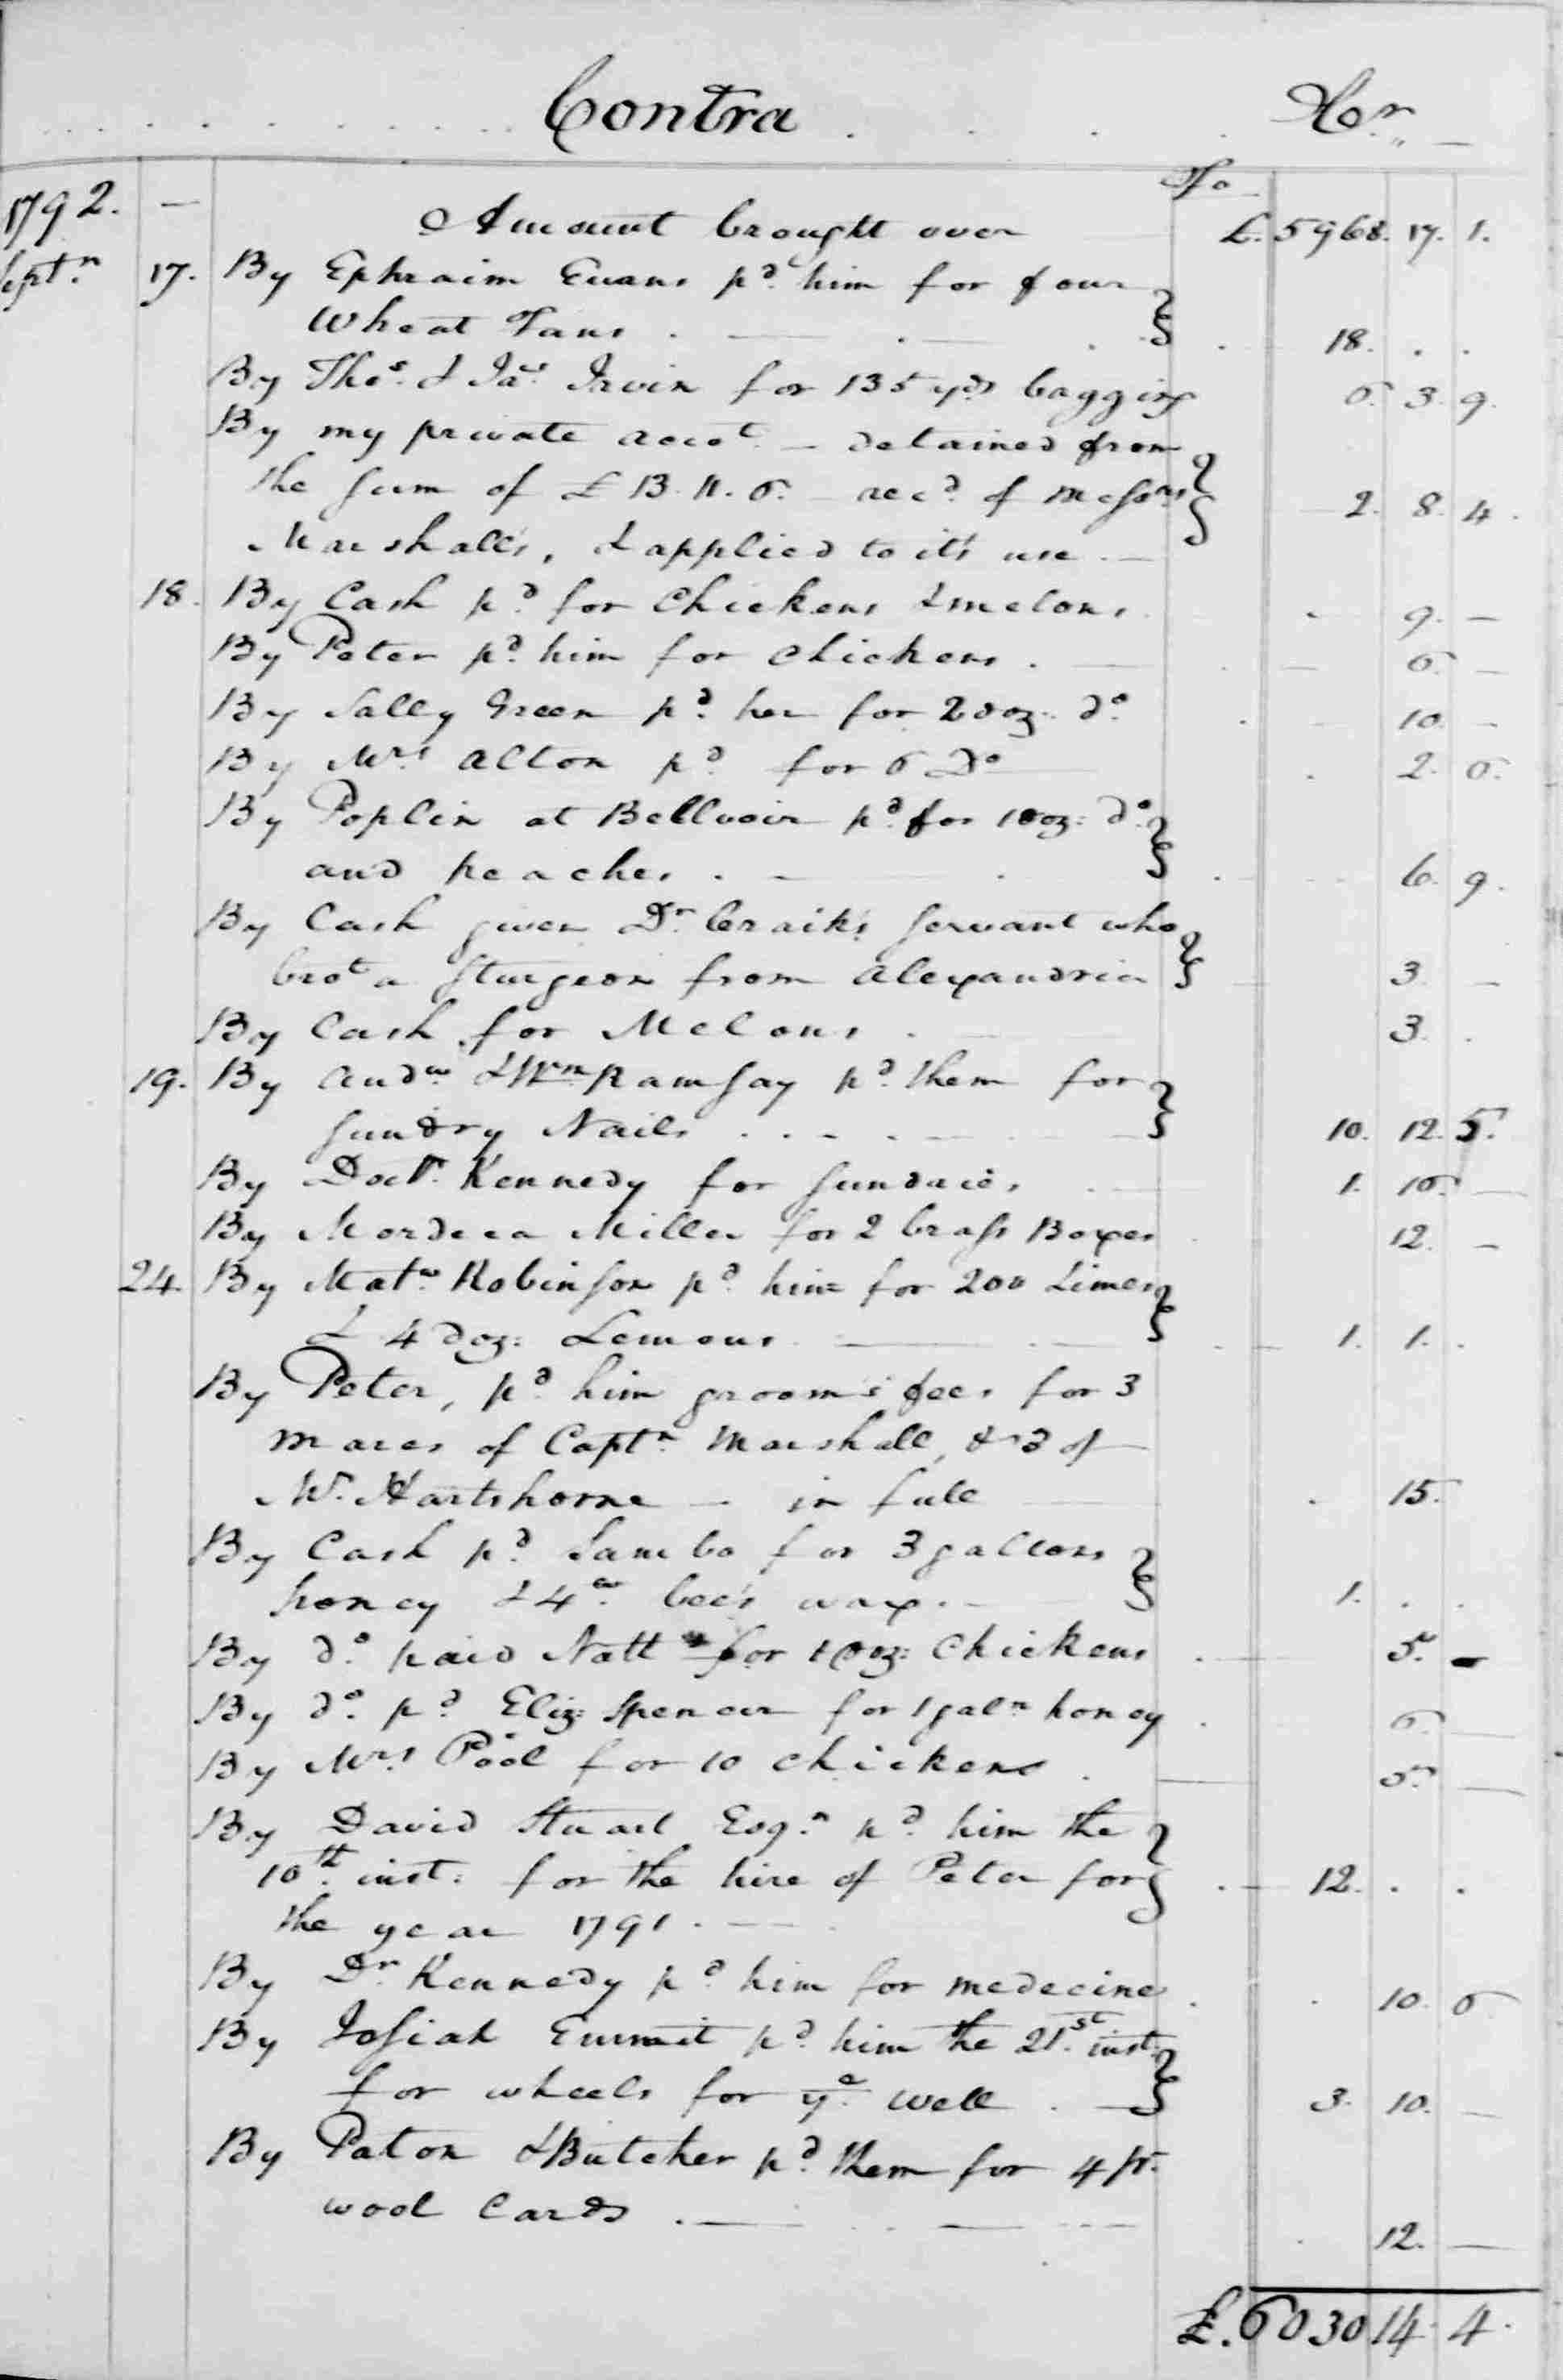 Contra Cr
Fo
1792. — Amount brought over £. 5968. 17. 1.
Septr. 17. By Ephraim Evans pd. him for four
Wheat Fans . — . — . . 18. . .
By Thos. & Jas. Irvin for 135 yds bagging 6. 3. 9.
By my private accot — detained from
the sum of £ 13. 11. 6. — recd. of Messrs
Marshall's, & applied to it's use — 2. 8. 4.
18. By Cash pd. for Chickens & melons. 9. —
By Peter pd. him for Chickens . — 6. —
By Sally Green pd. her for 2 doz: do. 10. —
By Mrs Alton pd. for 6 Do 2. 6.
By Poplin at Bellvoir pd. for 1 doz: do.
and peaches . — . 6. 9.
By Cash given Dr. Craik's servant who
brot a Sturgeon from Alexandria 3. —
By Cash for Melons . 3. .
19. By Andw & Wm Ramsay pd. them for
sundry Nails . . . — 10. 12. 5.
By Doctr. Kennedy for sundries, 1. 16. —
By Mordeca Miller for 2 brass Boxes 12. —
24. By Matw. Robinson pd. him for 200 Limes
& 4 doz: Lemons — . — 1. 1. .
By Peter, pd. him groom's fees for 3
mares of Captn. Marshall, & 3 of
Mr. Hartshorne — in full 15.
By Cash pd. Sambo for 3 gallons
honey & 4 w. bee's wax. — 1. . .
By do. paid Natt for 1 doz: Chickens 5. —
By do. pd. Eliz: Spencer for 1 galn honey 6. —
By Mrs Pool for 10 chickens . 5. —
By David Stuart Esqr. pd. him the
10th. inst: for the hire of Peter for
the year 1791. — 12. . .
By Dr. Kennedy pd. him for medecine . 10. 6
By Josiah Emmit pd. him the 21st. inst:
for wheels for ye. well . — 3. 10. —
By Paton & Butcher pd. them for 4 pr.
wool Cards . — 12. —
£. 6030 14. 4.